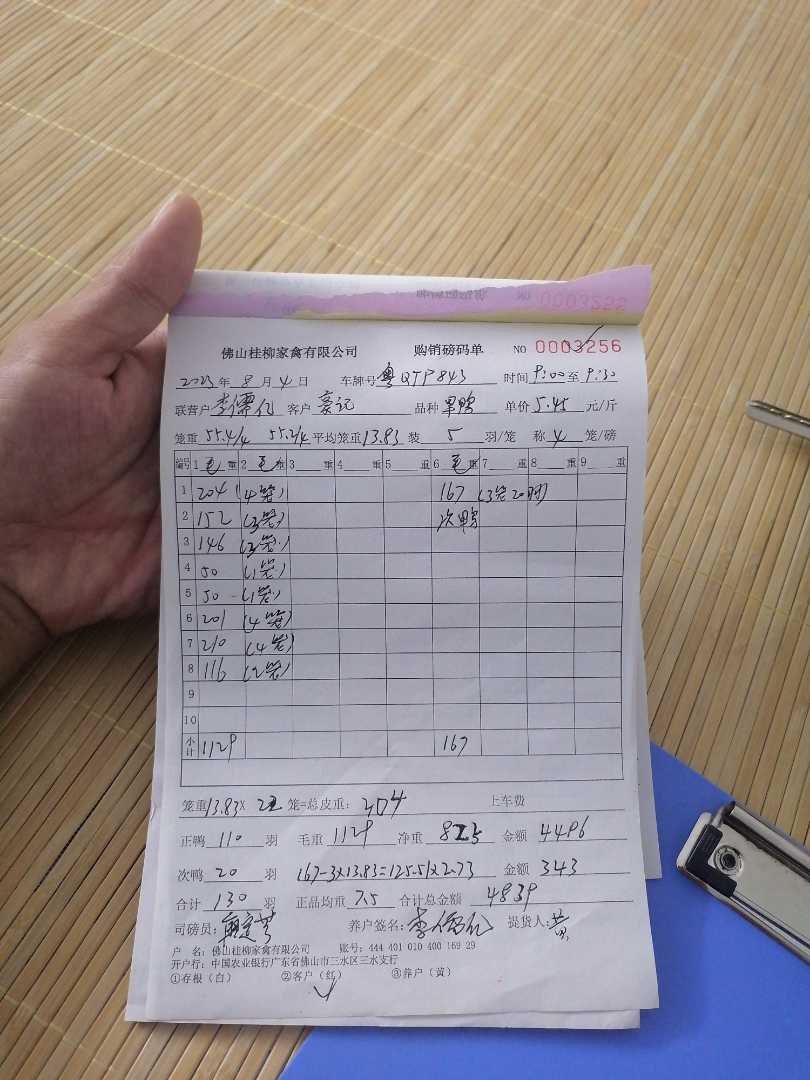 NO 0003256
佛山桂柳家禽有限公司 购销磅码单 NO 0003256
2023年8月4日 车牌号 粤QTP843 时间 9:00至9:30
联营户 李 亿 客户 豪记 品种 单价 5.45 元/斤
笼重 55.4/4 55.2/4 平均笼重 13.83 装 5 羽/笼 称 4 笼/磅
编号 1 毛重 2 毛重 3 重 4 重 5 重 6 毛重 7 重 8 重 9 重
1 204 (4笼) 167 (3笼20羽)
2 152 (3笼) 次鸭
3 146 (3笼)
4 50 (1笼)
5 50 (1笼)
6 201 (4笼)
7 210 (4笼)
8 116 (2笼)
9
10
小计 1129 167
笼重 13.83 × 22 笼=总皮重: 304 上车费
正鸭 110 羽 毛重 1129 净重 825 金额 4496
次鸭 20 羽 167-3×13.83=125.51×2.73 金额 343
合计 130 羽 正品均重 7.5 合计总金额 4839
司磅员: 养户签名: 李 亿 提货人: 黄
户 名: 佛山桂柳家禽有限公司 账号: 444 401 010 400 169 29
开户行: 中国农业银行广东省佛山市三水区三水支行
①存根(白) ②客户(红) ③养户(黄)